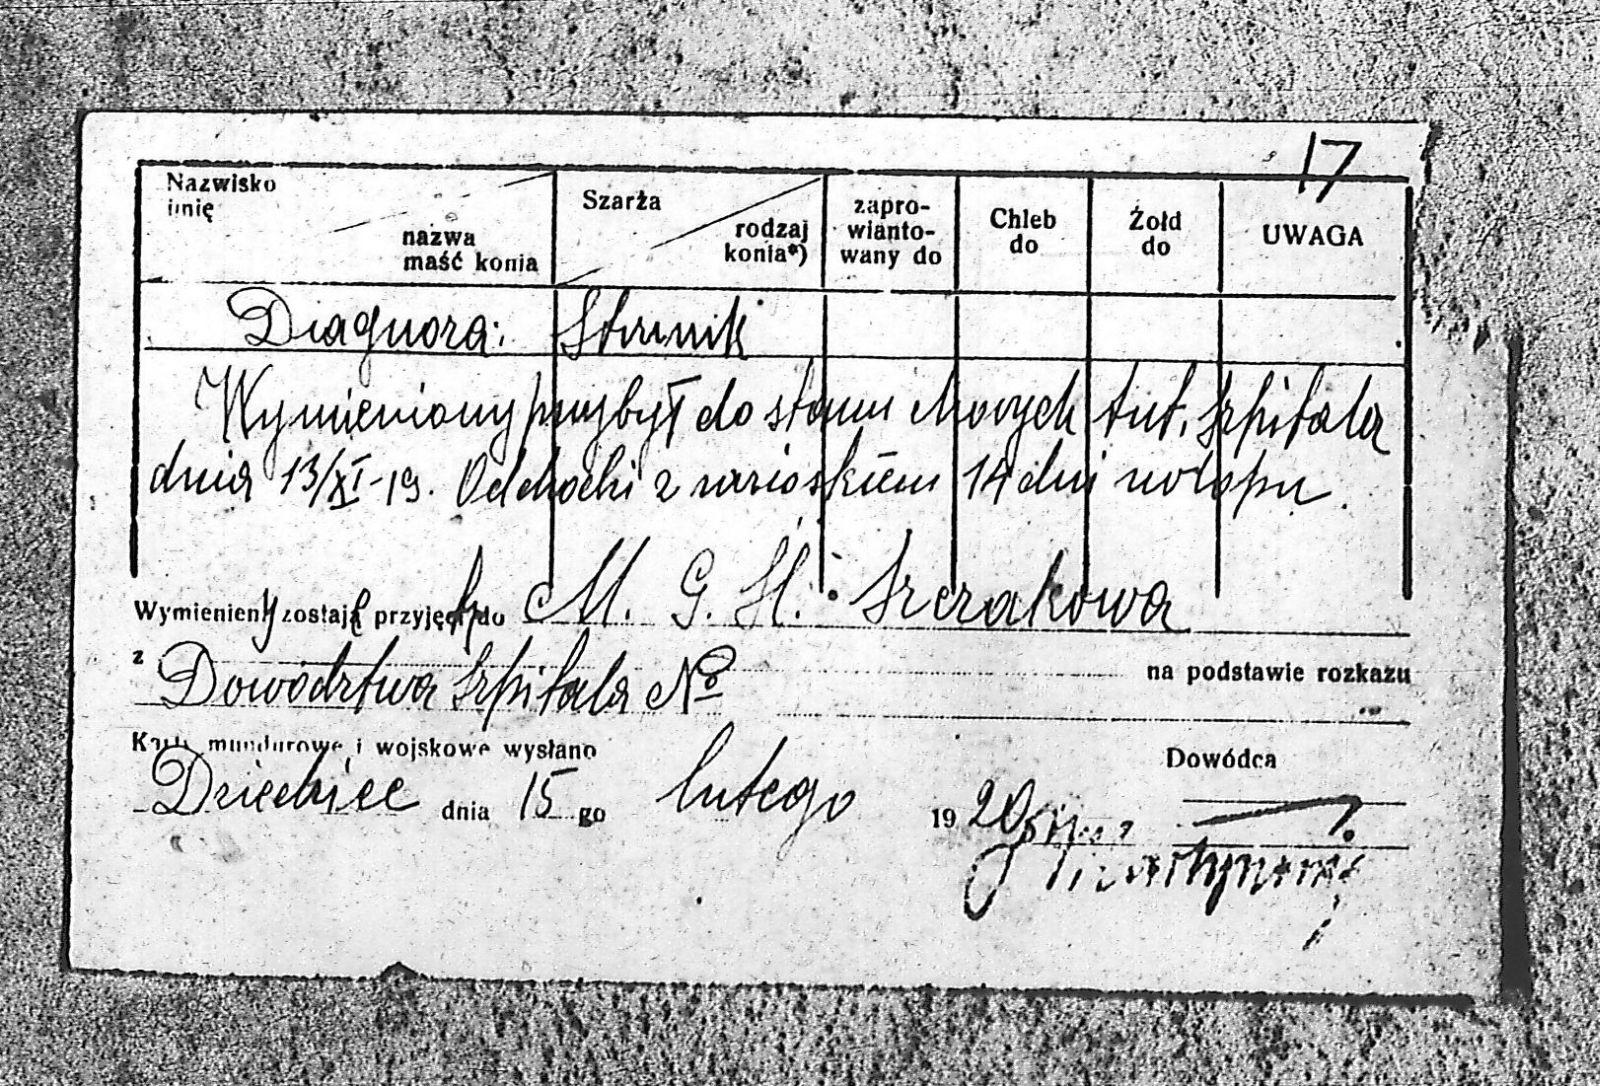 17
Nazwisko
imię
nazwa
maść konia
Szarża
rodzaj
konia*)
zapro-
wianto-
wany do
Chleb
do
Żołd
do
UWAGA
Diagnoza:
Wymieniony przybył do stanu chorych tut. szpitala
dnia 13/XI-19. Odchodzi z wnioskiem 14 dni urlopu.
Wymieniony zostaje przyjęty do M. G. H. Szczakowa
z
Dowództwa szpitala No
na podstawie rozkazu
Karty mundurowe i wojskowe wysłano
Dowódca
Dziedzice dnia 15 go lutego 1920